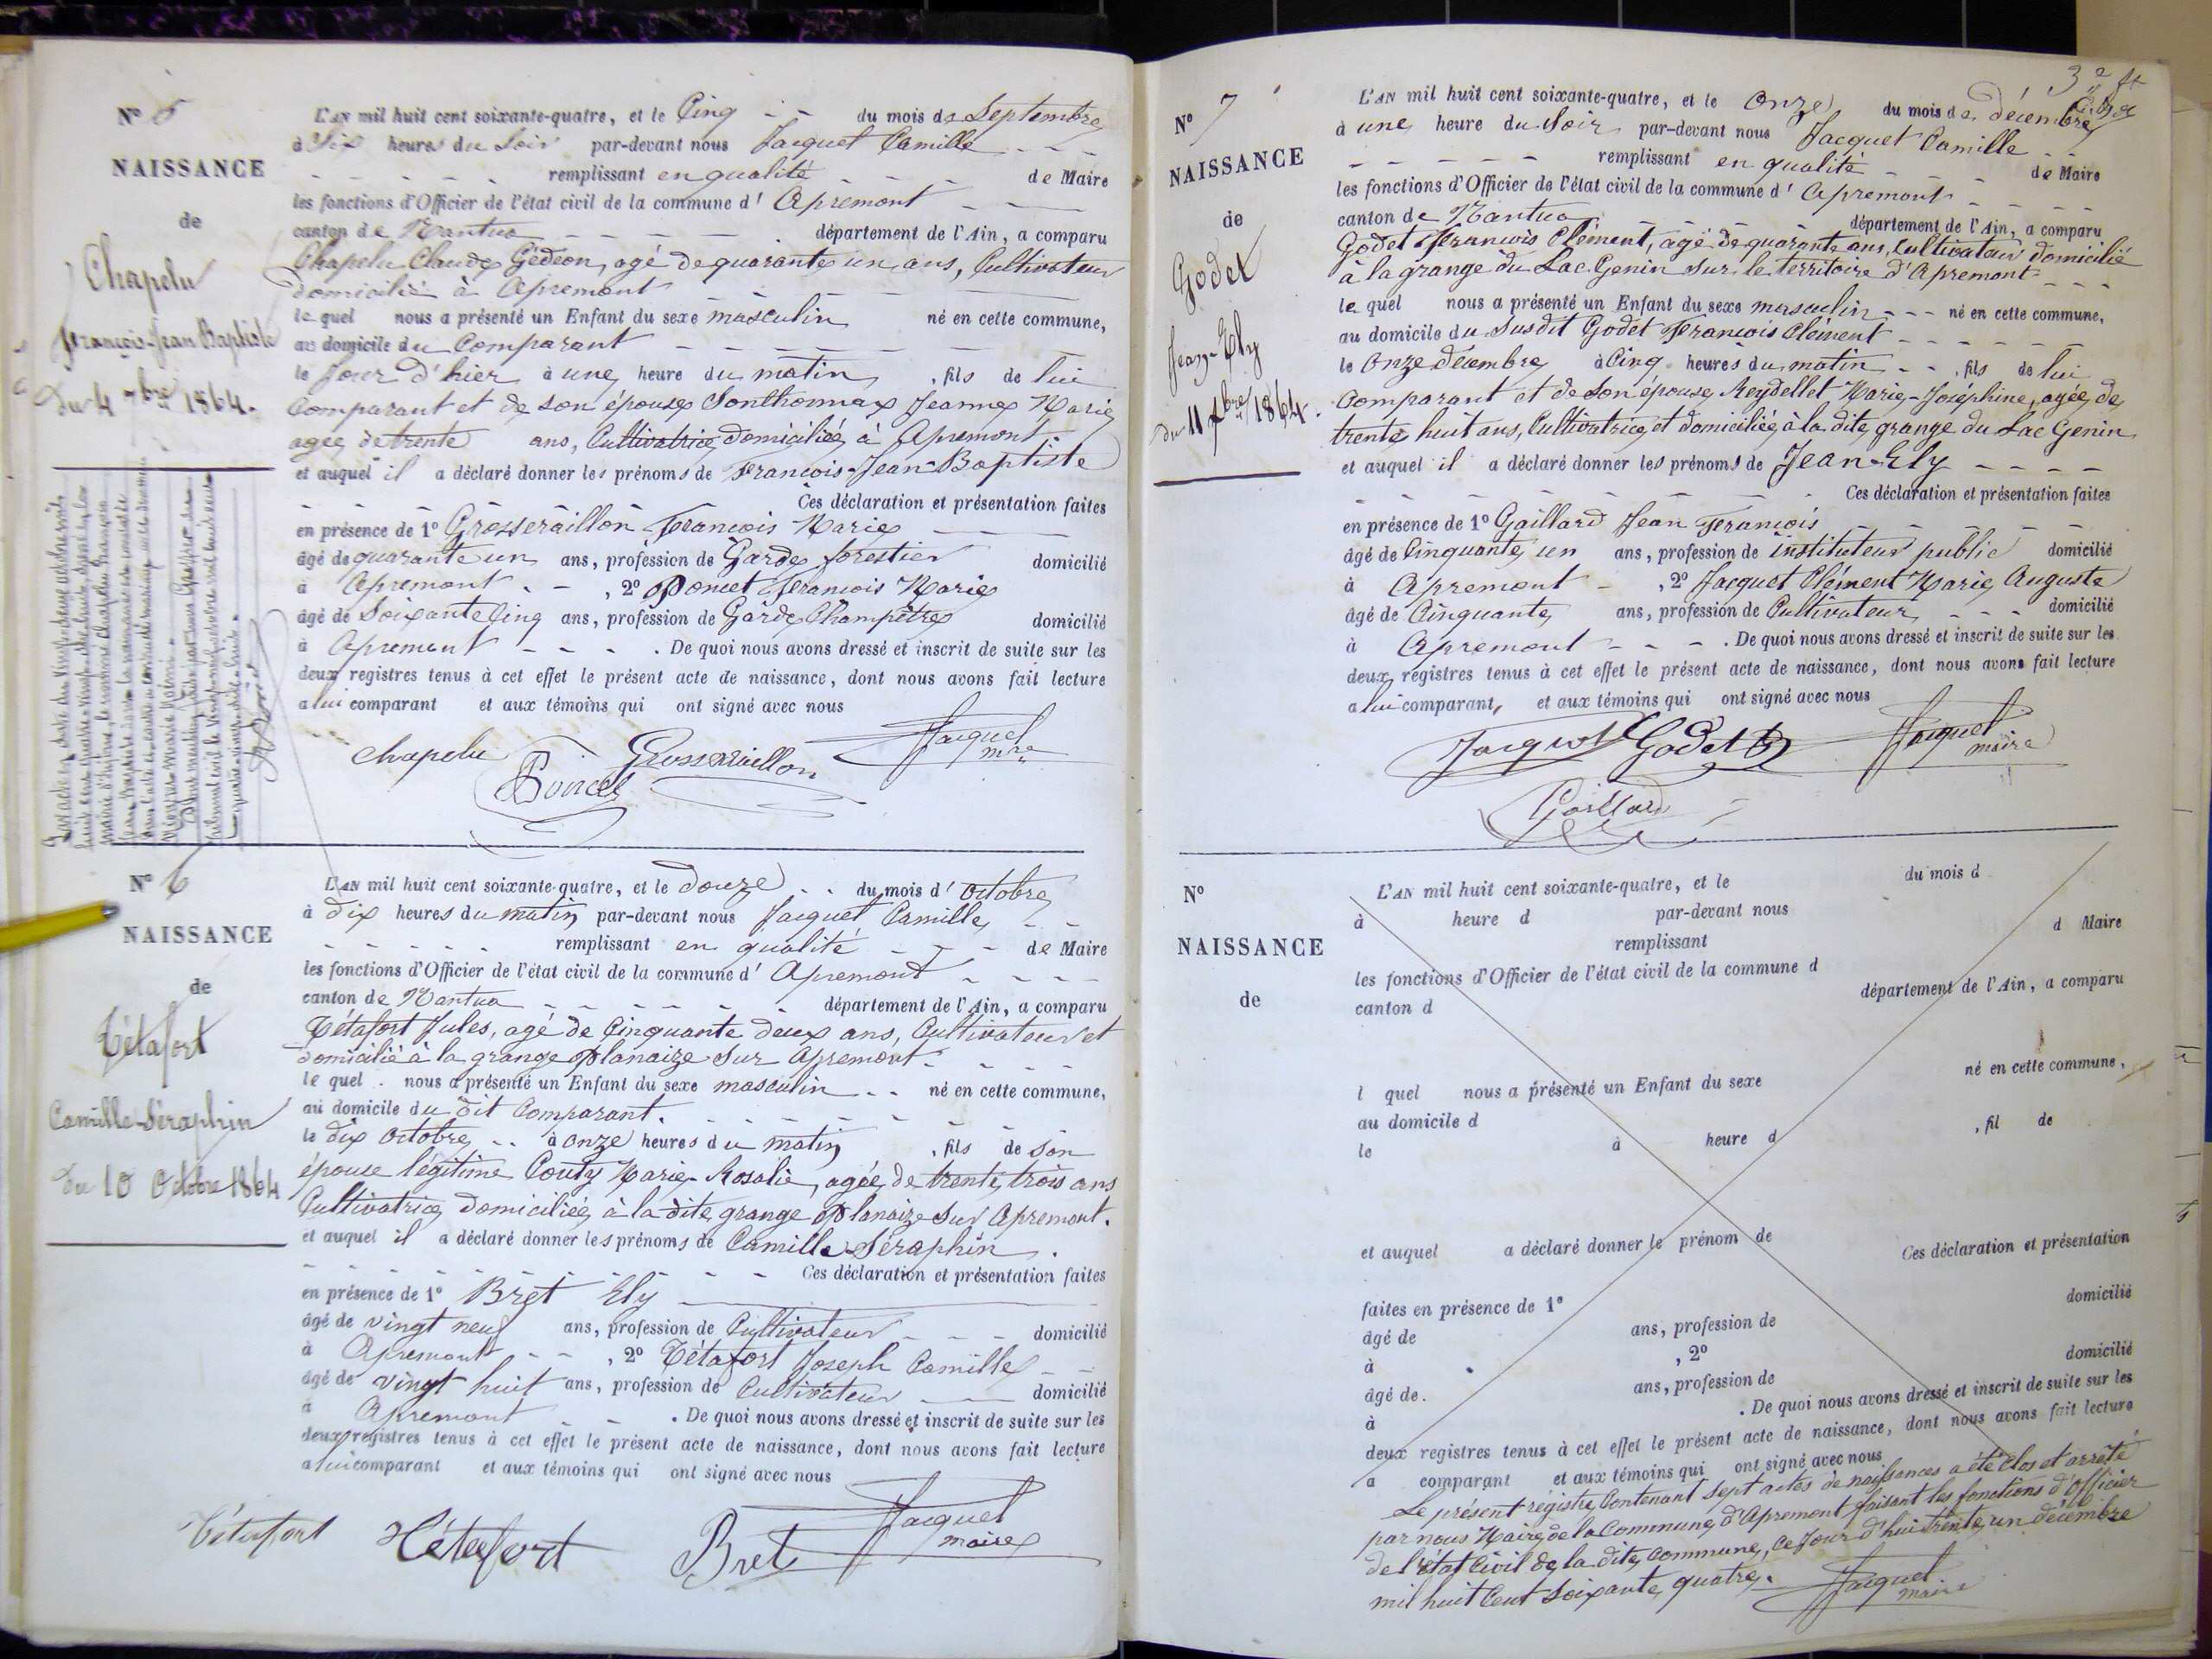 N° 5
NAISSANCE
de
Chapelu
François-Jean Baptiste
Du 4 7bre 1864.
L'AN mil huit cent soixante-quatre, et le Cinq du mois de Septembre
à Six heures du Soir par-devant nous Jacquet Camille
remplissant en qualité de Maire
les fonctions d'Officier de l'état civil de la commune d'Apremont
canton de Nantua département de l'Ain, a comparu
Chapelu Claude Gédéon, agé de quarante un ans, Cultivateur
domicilié à Apremont
lequel nous a présenté un Enfant du sexe masculin né en cette commune,
au domicile du Comparant
le Jour d'hier à une heure du matin, fils de lui
Comparant et de son épouse Sonthonnax Jeanne Marie
agée de trente ans, Cultivatrice domiciliée à Apremont
et auquel il a déclaré donner les prénoms de François-Jean-Baptiste
Ces déclaration et présentation faites
en présence de 1° Grosseraillon François Marie
âgé de quarante un ans, profession de Garde forestier domicilié
à Apremont, 2° Poncet François Marie
âgé de Soixante Cinq ans, profession de Garde Champêtre domicilié
à Apremont. De quoi nous avons dressé et inscrit de suite sur les
deux registres tenus à cet effet le présent acte de naissance, dont nous avons fait lecture
a lui comparant et aux témoins qui ont signé avec nous
Chapelu Poncet Grosseraillon Jacquet
maire
N° 6
NAISSANCE
de
Tétafort
Camille-Séraphin
du 10 Octobre 1864
L'AN mil huit cent soixante-quatre, et le douze du mois d'Octobre
à dix heures du matin par-devant nous Jacquet Camille
remplissant en qualité de Maire
les fonctions d'Officier de l'état civil de la commune d'Apremont
canton de Nantua département de l'Ain, a comparu
Tétafort Jules, agé de Cinquante deux ans, Cultivateur et
domicilié à la grange Planaize sur Apremont
lequel nous a présenté un Enfant du sexe masculin né en cette commune,
au domicile du dit Comparant.
le dix Octobre à onze heures du matin, fils de son
épouse légitime Couty Marie-Rosalie, agée de trente trois ans
Cultivatrice domiciliée à la dite grange Planaize sur Apremont.
et auquel il a déclaré donner les prénoms de Camille-Séraphin.
Ces déclaration et présentation faites
en présence de 1° Bret Ely
âgé de vingt neuf ans, profession de Cultivateur domicilié
à Apremont, 2° Tétafort Joseph Camille
âgé de vingt huit ans, profession de Cultivateur domicilié
à Apremont. De quoi nous avons dressé et inscrit de suite sur les
deux registres tenus à cet effet le présent acte de naissance, dont nous avons fait lecture
a lui comparant et aux témoins qui ont signé avec nous
Tétafort Tétafort Bret Jacquet
maire
N° 7
NAISSANCE
de
Godet
Jean-Ely
du 11 Xbre 1864.
L'AN mil huit cent soixante-quatre, et le onze du mois de décembre
à une heure du Soir par-devant nous Jacquet Camille
remplissant en qualité de Maire
les fonctions d'Officier de l'état civil de la commune d'Apremont
canton de Nantua département de l'Ain, a comparu
Godet François Clément, agé de quarante ans, Cultivateur domicilié
à la grange du Lac Genin sur le territoire d'Apremont
lequel nous a présenté un Enfant du sexe masculin né en cette commune,
au domicile du susdit Godet François Clément
le Onze décembre à Cinq heures du matin, fils de lui
Comparant et de son épouse Reydellet Marie-Joséphine, agée de
trente huit ans, Cultivatrice et domiciliée à la dite grange du Lac Genin
et auquel il a déclaré donner les prénoms de Jean-Ely
Ces déclaration et présentation faites
en présence de 1° Gaillard Jean François
âgé de Cinquante un ans, profession de instituteur public domicilié
à Apremont, 2° Jacquet Clément Marie Auguste
âgé de Cinquante ans, profession de Cultivateur domicilié
à Apremont. De quoi nous avons dressé et inscrit de suite sur les
deux registres tenus à cet effet le présent acte de naissance, dont nous avons fait lecture
a lui comparant, et aux témoins qui ont signé avec nous
Jacquet Godet Jacquet
maire
Gaillard
N°
NAISSANCE
de
L'AN mil huit cent soixante-quatre, et le du mois d
à heure d par-devant nous
remplissant d Maire
les fonctions d'Officier de l'état civil de la commune d
canton d département de l'Ain, a comparu
l quel nous a présenté un Enfant du sexe né en cette commune,
au domicile d
le à heure d, fil de
et auquel a déclaré donner le prénom de
Ces déclaration et présentation
faites en présence de 1°
âgé de ans, profession de domicilié
à, 2°
âgé de. ans, profession de domicilié
à. De quoi nous avons dressé et inscrit de suite sur les
deux registres tenus à cet effet le présent acte de naissance, dont nous avons fait lecture
a comparant et aux témoins qui ont signé avec nous
Le présent régistre Contenant Sept actes de naissances a été Clos et arrêté
par nous Maire de la Commune d'Apremont faisant les fonctions d'Officier
de l'état Civil de la dite Commune, ce Jour d'hui trente un décembre
mil huit Cent Soixante quatre.
Jacquet
maire